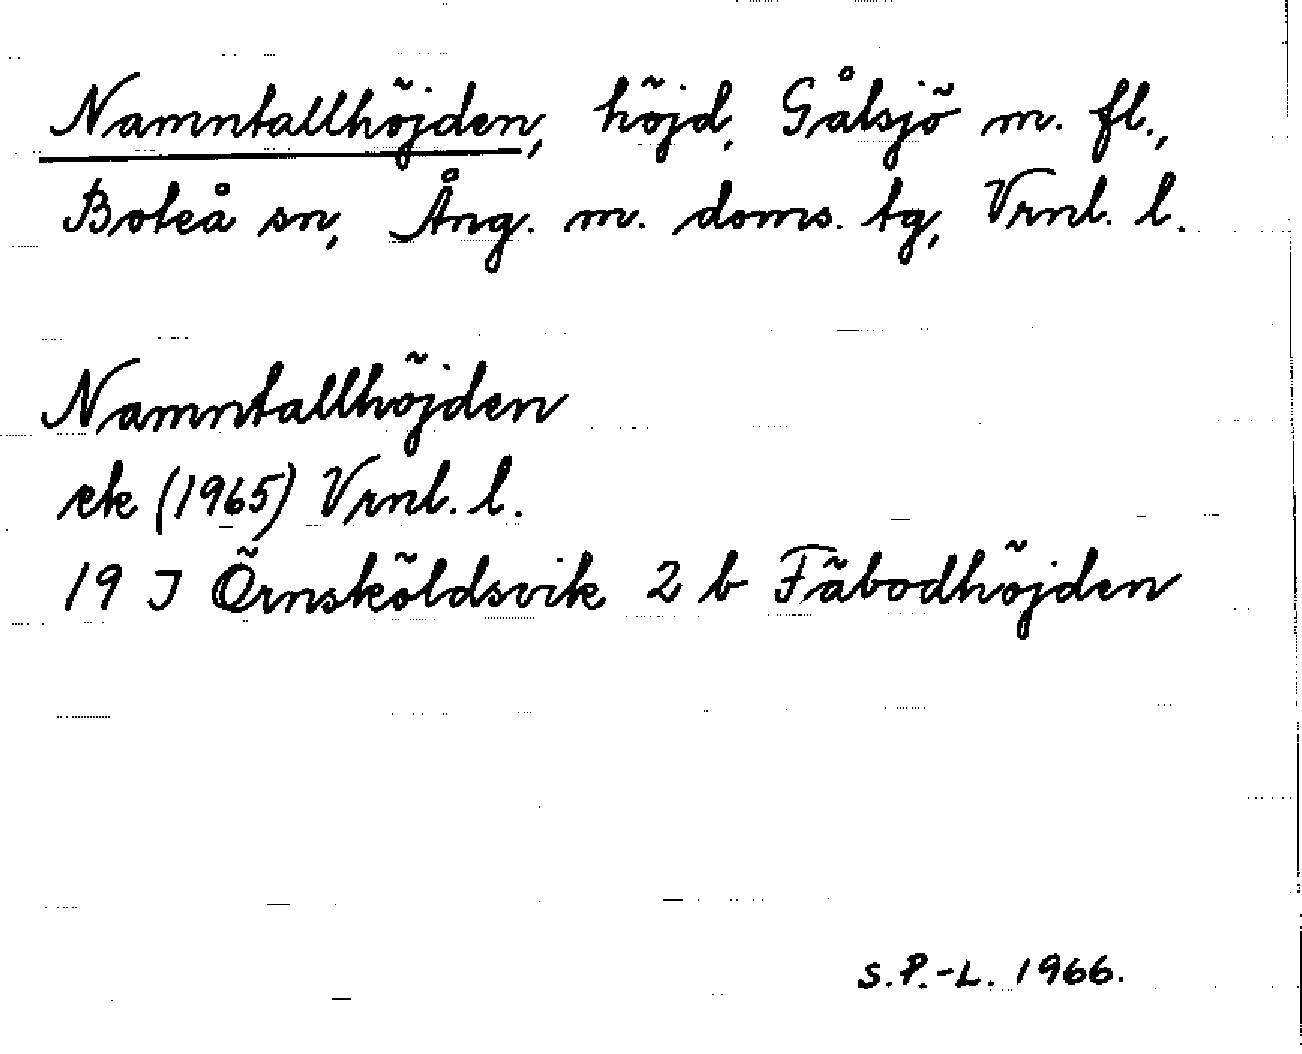 Namntallhöjden, höjd, Gålsjö m. fl.,
Boteå sn, Ång. m. doms. tg, Vrnl. l.
Namntallhöjden
ek (1965) Vrnl. l.
19 J Örnsköldsvik 2 b Fäbodhöjden
S.P.-L. 1966.